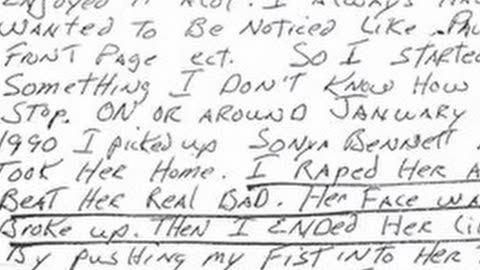 ENJOYED IT ALOT. I ALWAYS
WANTED TO BE NOTICED LIKE
FRONT PAGE ECT. SO I STARTED
SOMETHING I DON'T KNOW HOW
STOP. ON OR AROUND JANUARY
1990 I picked up SONYA BENNETT
TOOK HER HOME. I RAPED HER A
BEAT HER REAL BAD. HER FACE WA
BROKE UP. THEN I ENDED HER
By pushing my FIST INTO HER